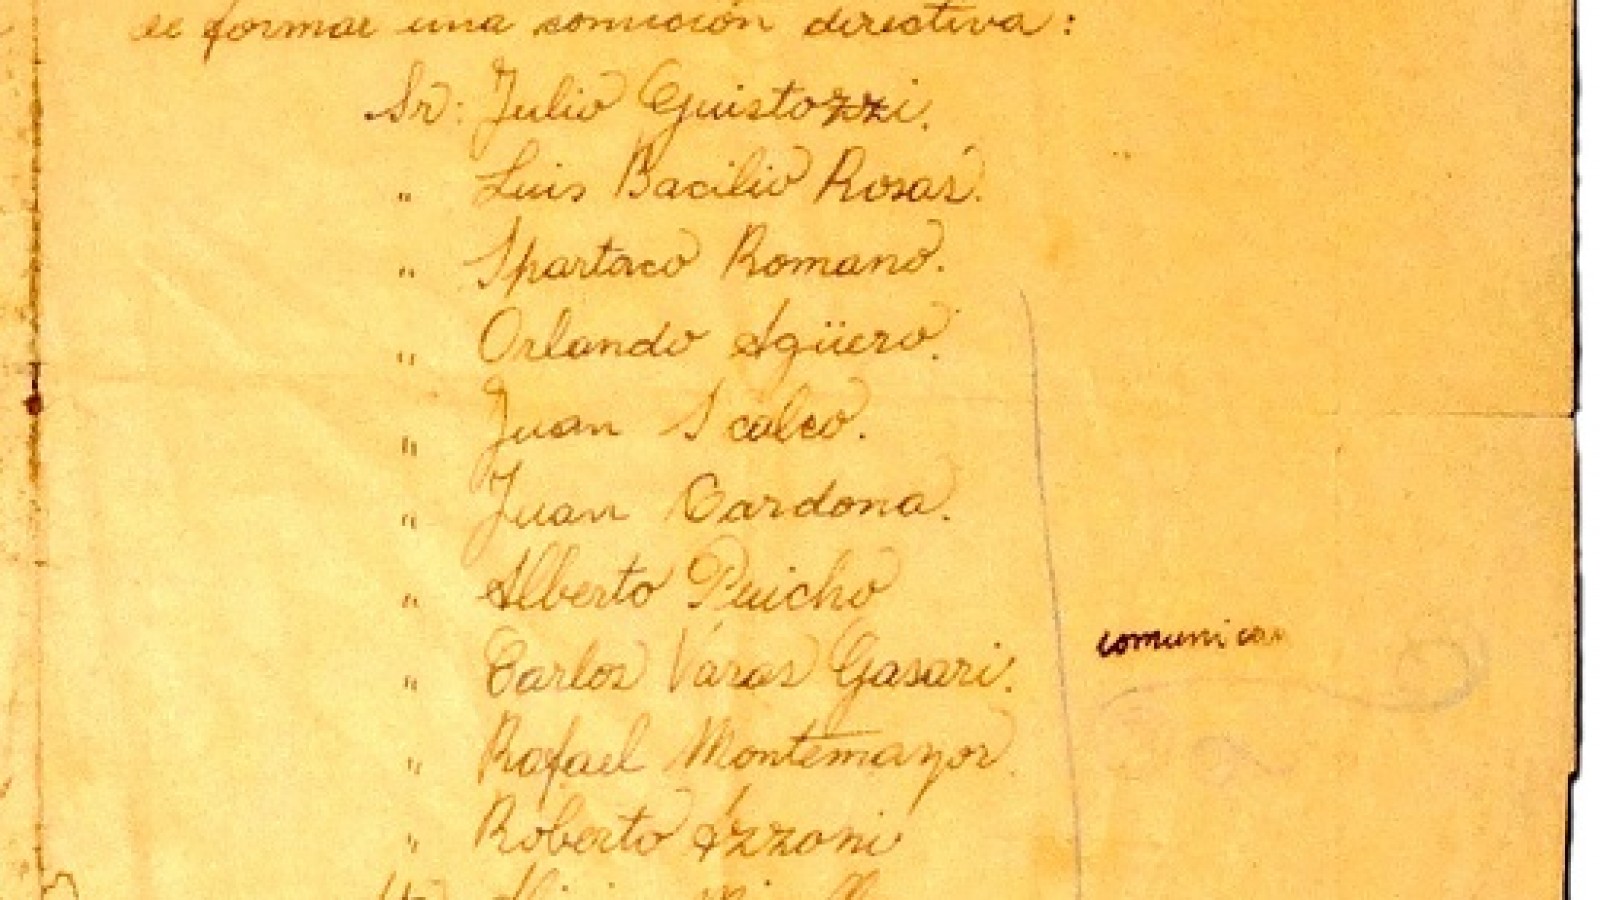 de formar una comición directiva:
Sr: Julio Guistozzi.
" Luis Bacilio Rosas.
" Spartaco Romano.
" Orlando Agüero.
" Juan Scalco.
" Juan Cardona.
" Alberto Puicho
" Carlos Varas Gasari.
comunicar
" Rafael Montemayor.
" Roberto Azzoni